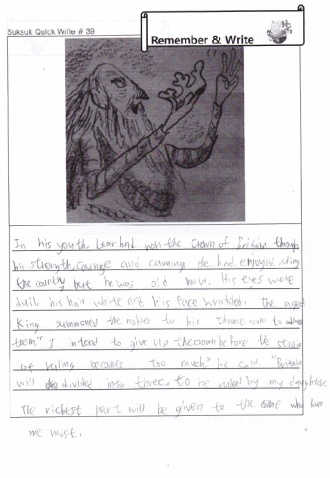 Suksuk Quick Write # 39
Remember & Write
In his youth, Lear had won the crown of Britain through
his strength, courage and cunning. He had enjoyed ruling
the country but he was old now. His eyes were
dull, his hair white and his face wrinkled. The aged
King summoned the nobles to his throne room to address
them." I intend to give up the crown before the strain
of ruling becomes too much," he said. "Britain
will be divided into three, to be ruled by my daughters.
The richest part will be given to the one who loves
me most.